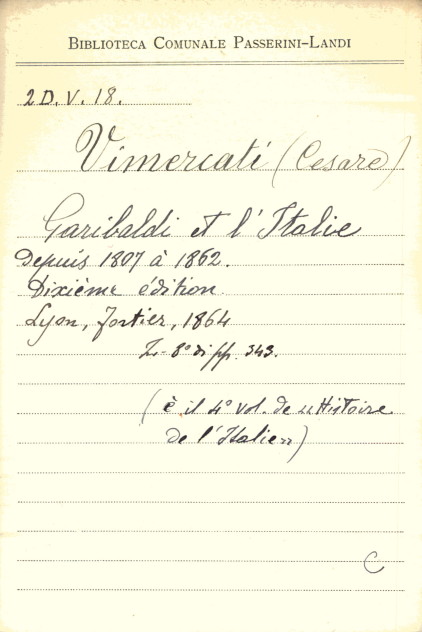 BIBLIOTECA COMUNALE PASSERINI-LANDI
2 D. V. 18.
Vimercati (Cesare)
Garibaldi et l'Italie
Depuis 1807 à 1862.
Dixième édition
Lyon, Fortier, 1864
8° di pp. 343.
(è il 4° vol. de "Histoire
de l'Italie")
C